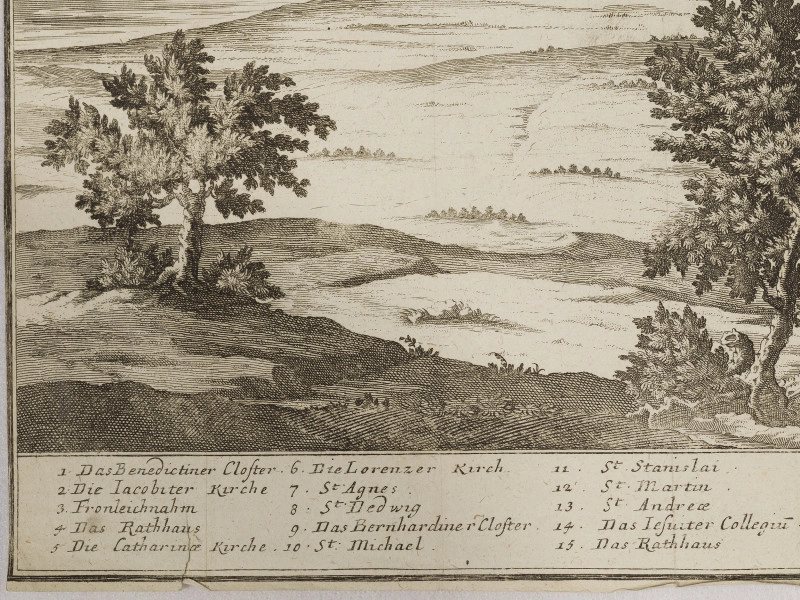 1. Das Benedictiner Closter.
2 Die Iacobiter Kirche
3. Fronleichnahm
4 Das Rathhaus
5 Die Catharinæ Kirche.
6. Die Lorenzer Kirch
7. St Agnes.
8. St Dedwig
9. Das Bernhardiner Closter.
10. St. Michael.
11. St Stanislai.
12. St Martin.
13. St. Andreæ
14. Das Iesuiter Collegiū.
15. Das Rathhaus